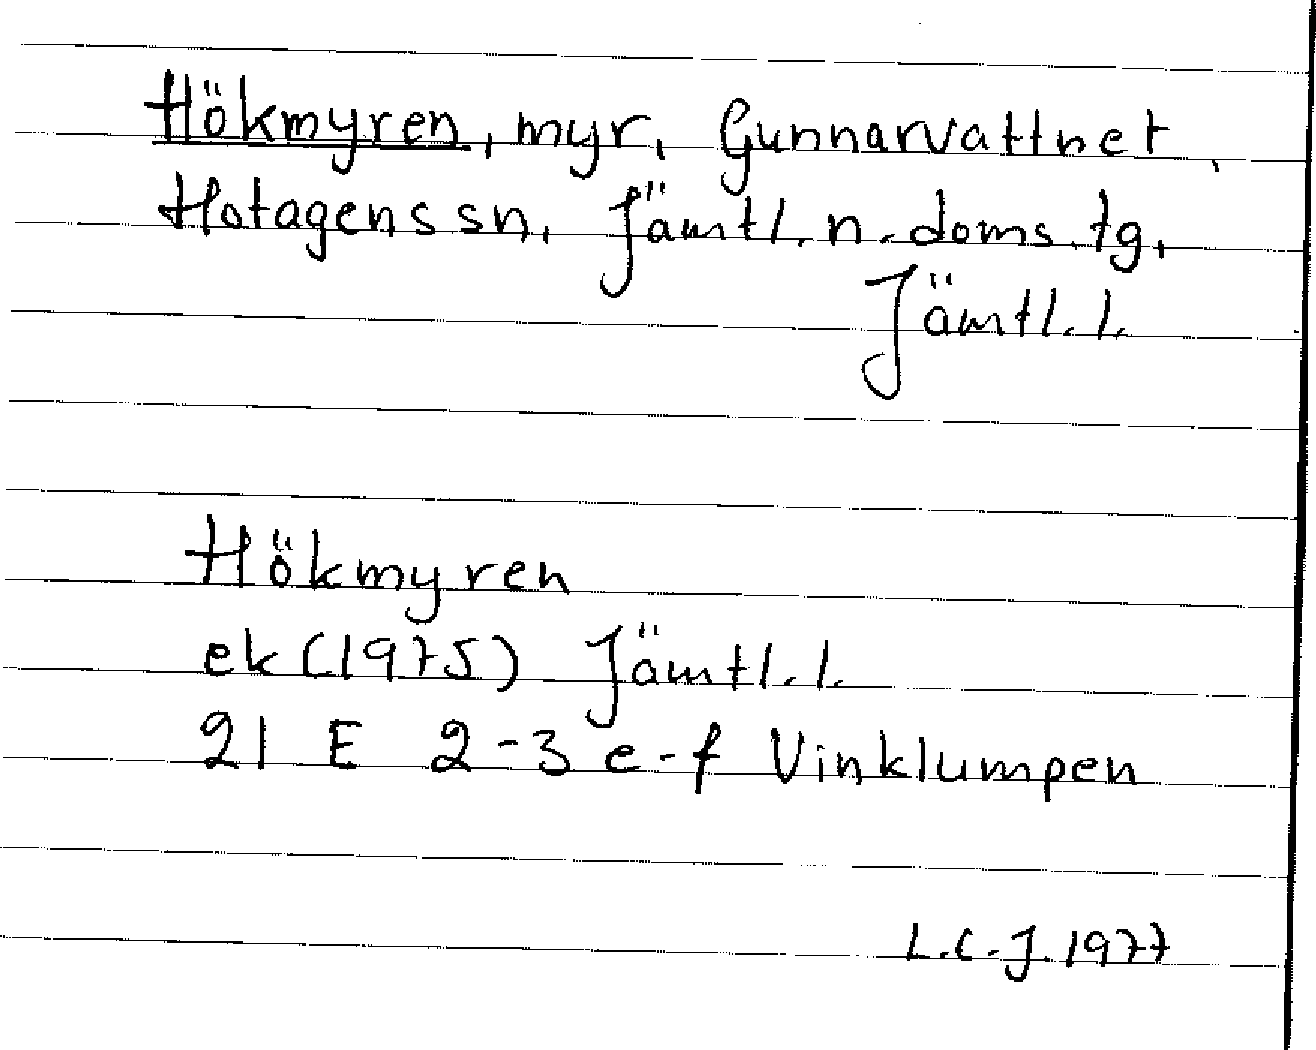 Hökmyren, myr, Gunnarvattnet,
Hotagens sn, Jämtl. n. doms. tg,
Jämtl. l.
Hökmyren
ek (1975) Jämtl. l.
21 E 2-3 e-f Vinklumpen
L.C.J. 1977